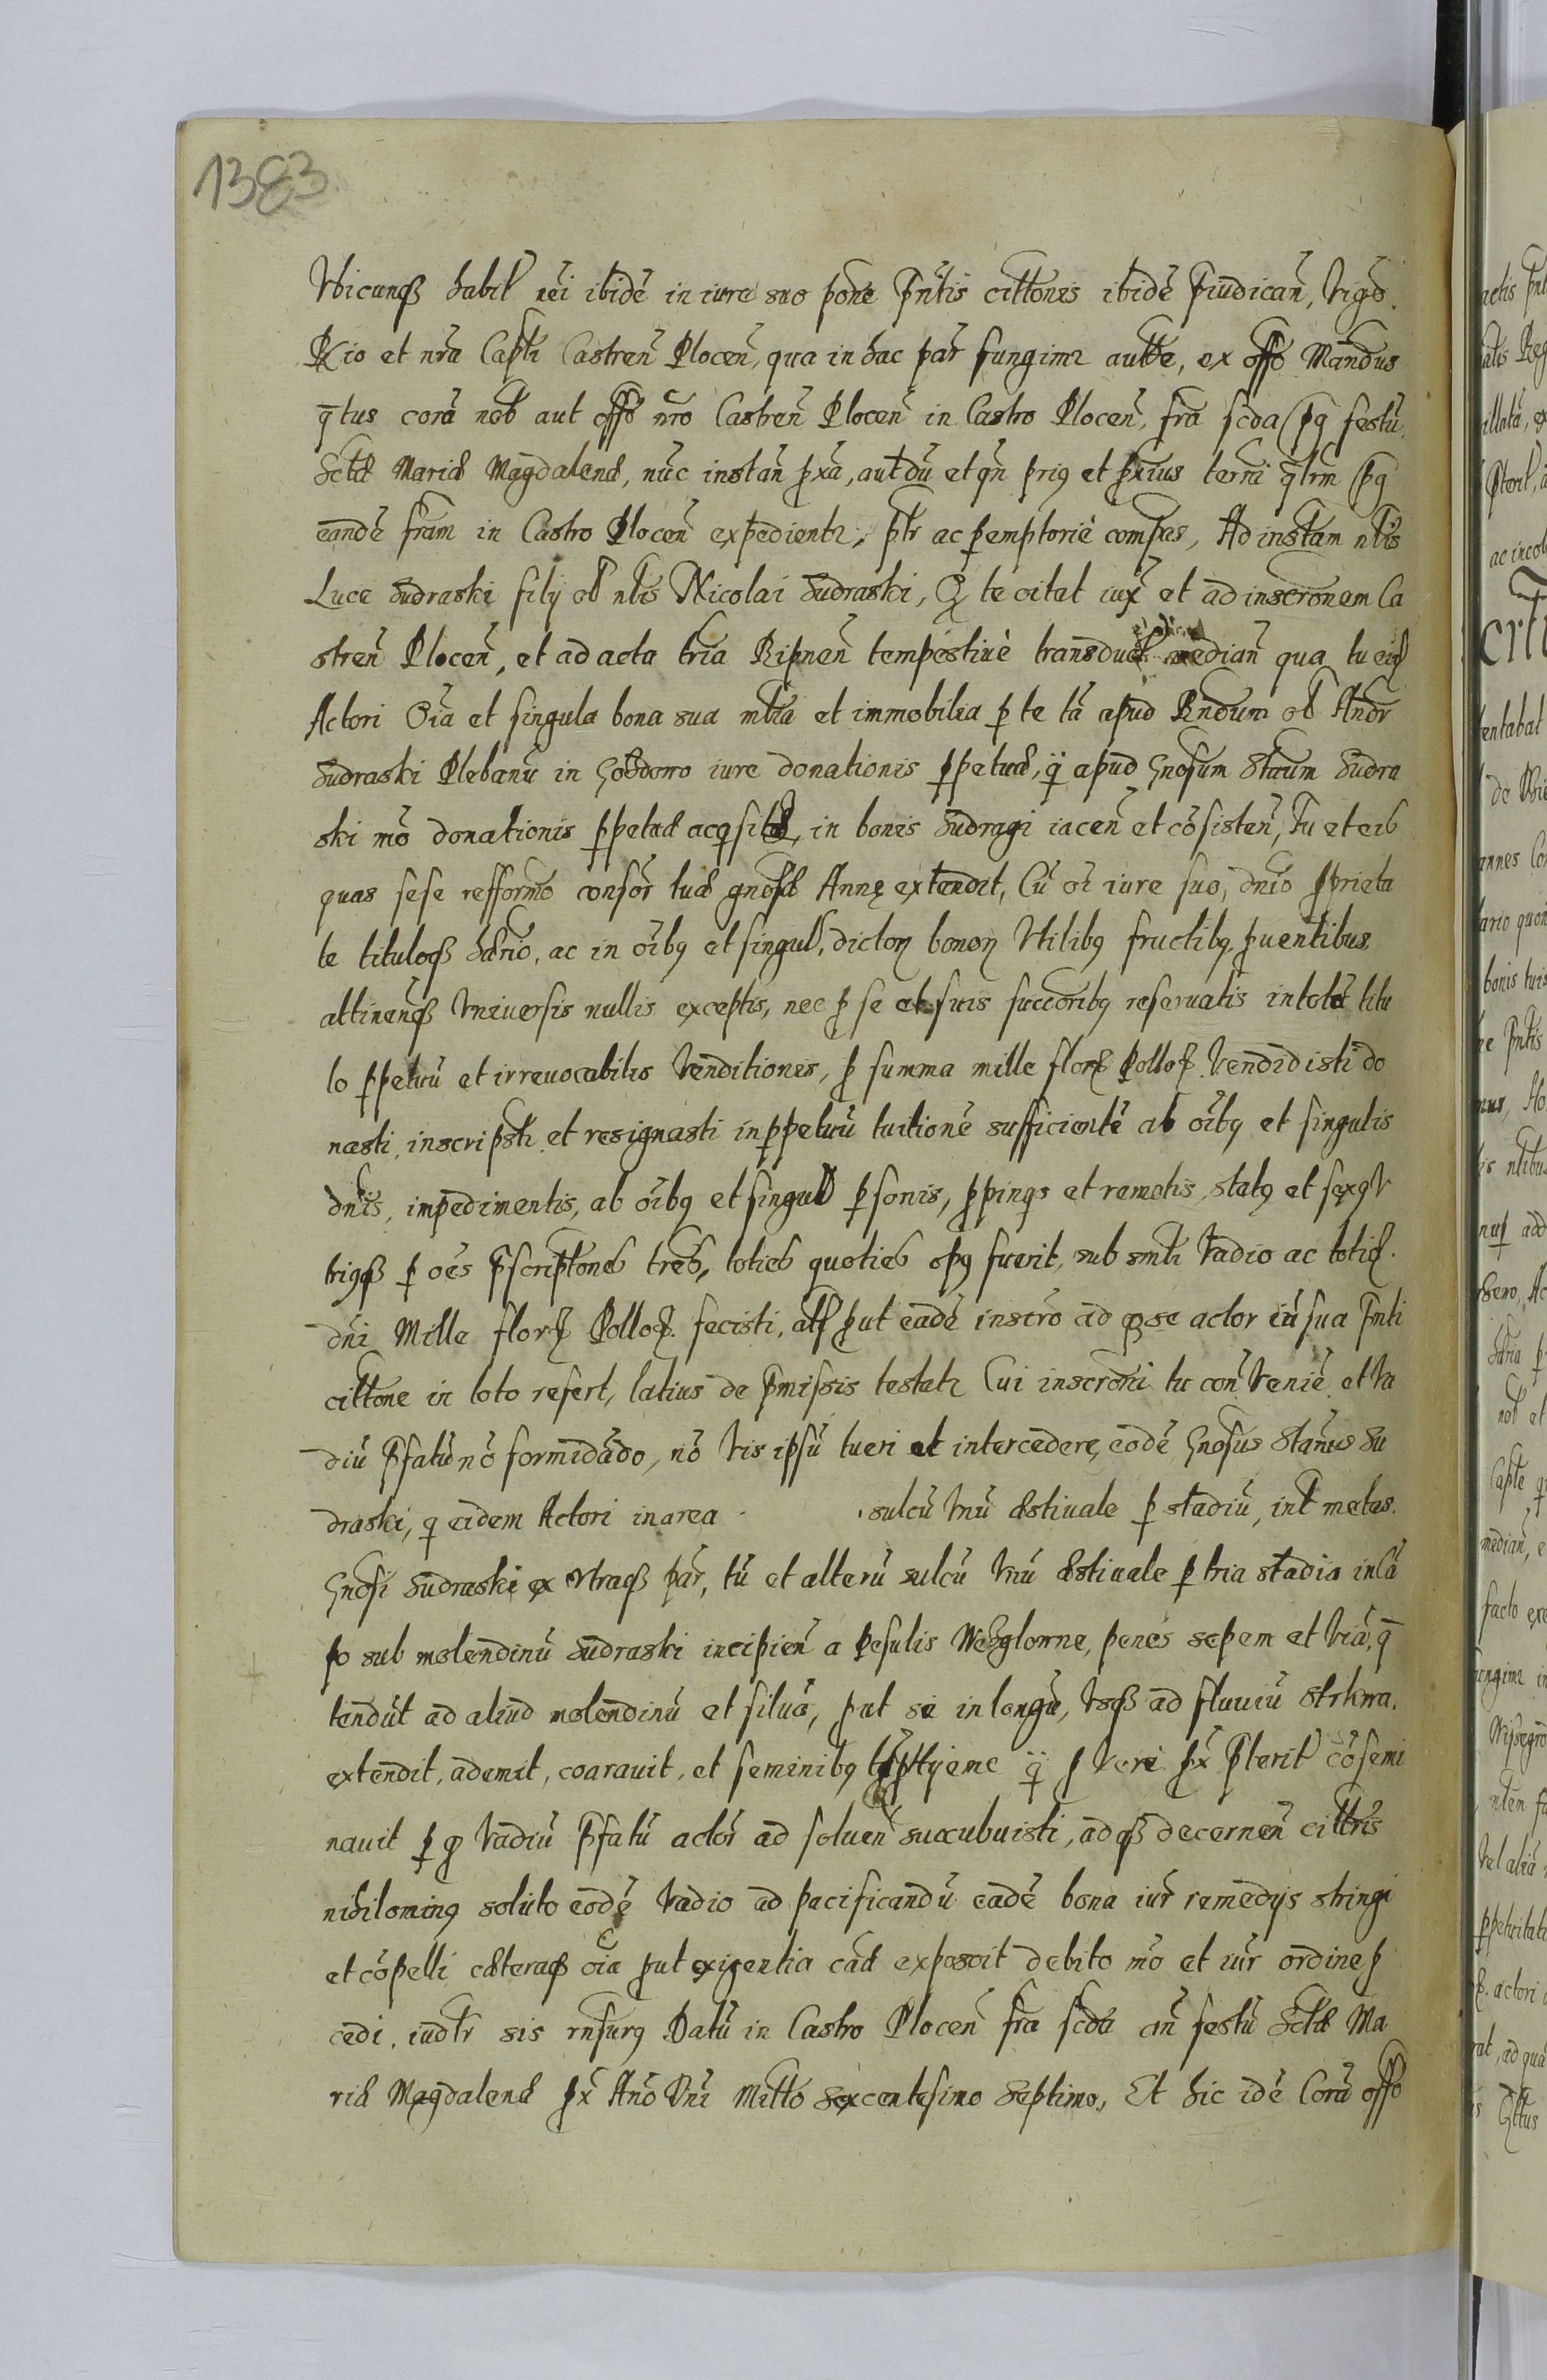 1383
Vbicunqꝫ habil rei ibidē in iure suo pone pñtis cittones ibidē p̄iudicañ, Vigō.
R̄io et nrā Capti Castreñ Ploceñ, qua in hac par̄ fungimr autte, ex offo Mandus
q̄tus corā nob aut offo nr̄o Castreñ Ploceñ in Castro Ploceñ, fra scda pq festū
Sctæ Mariæ Magdalenæ, nūc instañ pxā, aut dū et qñ prig et pxius terrñ q̄trm pq
eandē fram in Castro Ploceñ expedientr, ptr ac pemptoriè compas, Ad instam ntis
Luce Sudraski filij ol ntis Nicolai Sudraski, Q te citat iux et ad inscronem Ca
streñ Ploceñ, et ad acta tria Ripneñ tempestiuè transduct mediañ qua tu eid
Actori Oīa et singula bona sua mbia et immobilia p te tā apud Rndum ol Andr
Sudraski Plebanū in iure donationis ppetuæ, q̄ apud Gnosum Stāum Sudra
ski mō donationis ppetuæ acqsita, in bonis Sudragi iaceñ et cōsisteñ, Tu et eis
quas sese refformo consor tuæ gnosæ Annę extendit, Cū oī iure suo, dnio pprieta
te tituloqꝫ hdrio, ac in oībg et singul, dictoꝝ bonoꝝ Vtilibg fructibg, puentibus
attinenqꝫ Vniuersis nullis exceptis, nec p se et suis succoribg reseruatis in totū titu
lo ppetuū et irreuocabilis Venditionis, p summa mille flor Polloꝝ. Vendidisti do
nasti, inscripsti et resignasti in ppetuū tuitionē sufficientē ab oībg et singulis
dnis, impedimentis, ab oībg et singul psonis, ppings et remotis, statg et sexgV
trigqꝫ p oēs pscriptones tres, toties quoties opg fuerit, sub smti Vadio ac totid.
dni Mille flor Polloꝝ. fecisti, alſ put eādē inscro ad qse actor in sua pnti
cittone in toto refert, latius de pmissis testatr Cui inscroni tu conVeniē et Va
diū pfatū nō formidādo, nō Vis ipsū tueri et intercedere, eodē Gnosus Stānus Su
draski, q eidem Actori in area sulcū Vnū æstiuale p stadiū, int metas.
Gnosi Sudraski ex Vtraqꝫ par̄, tū et alterū sulcū Vnū æstiuale p tria stadia in cā
po sub molendinū Sudraski incipieñ a Pesulis Węglowne, penes sepem et Viā, q̄
tendūt ad aliud molendinū et siluā, put se in longū, Vsqꝫ ad fluuiū Strkwa.
extendit, ademit, coarauit, et seminibg q̄ p Vere px pterit cōsemi
nauit p q Vadiū pfatū actor ad solueñ succubuisti, adqꝫ decerneñ cittris
nihiloming soluto eodē Vadio ad pacificandū eadē bona iur remedijs stringi
et cōpelli cæteraqꝫ oīa put exigentia caæ exposcit debito mō et iur ordine p
cedi. iudtr sis rnsurg Datū in Castro Ploceñ fra scda añ festū Sctæ Ma
riæ Magdalenæ px Año Dni Millo sexcentesimo Septimo, Et hic idē Corā offo